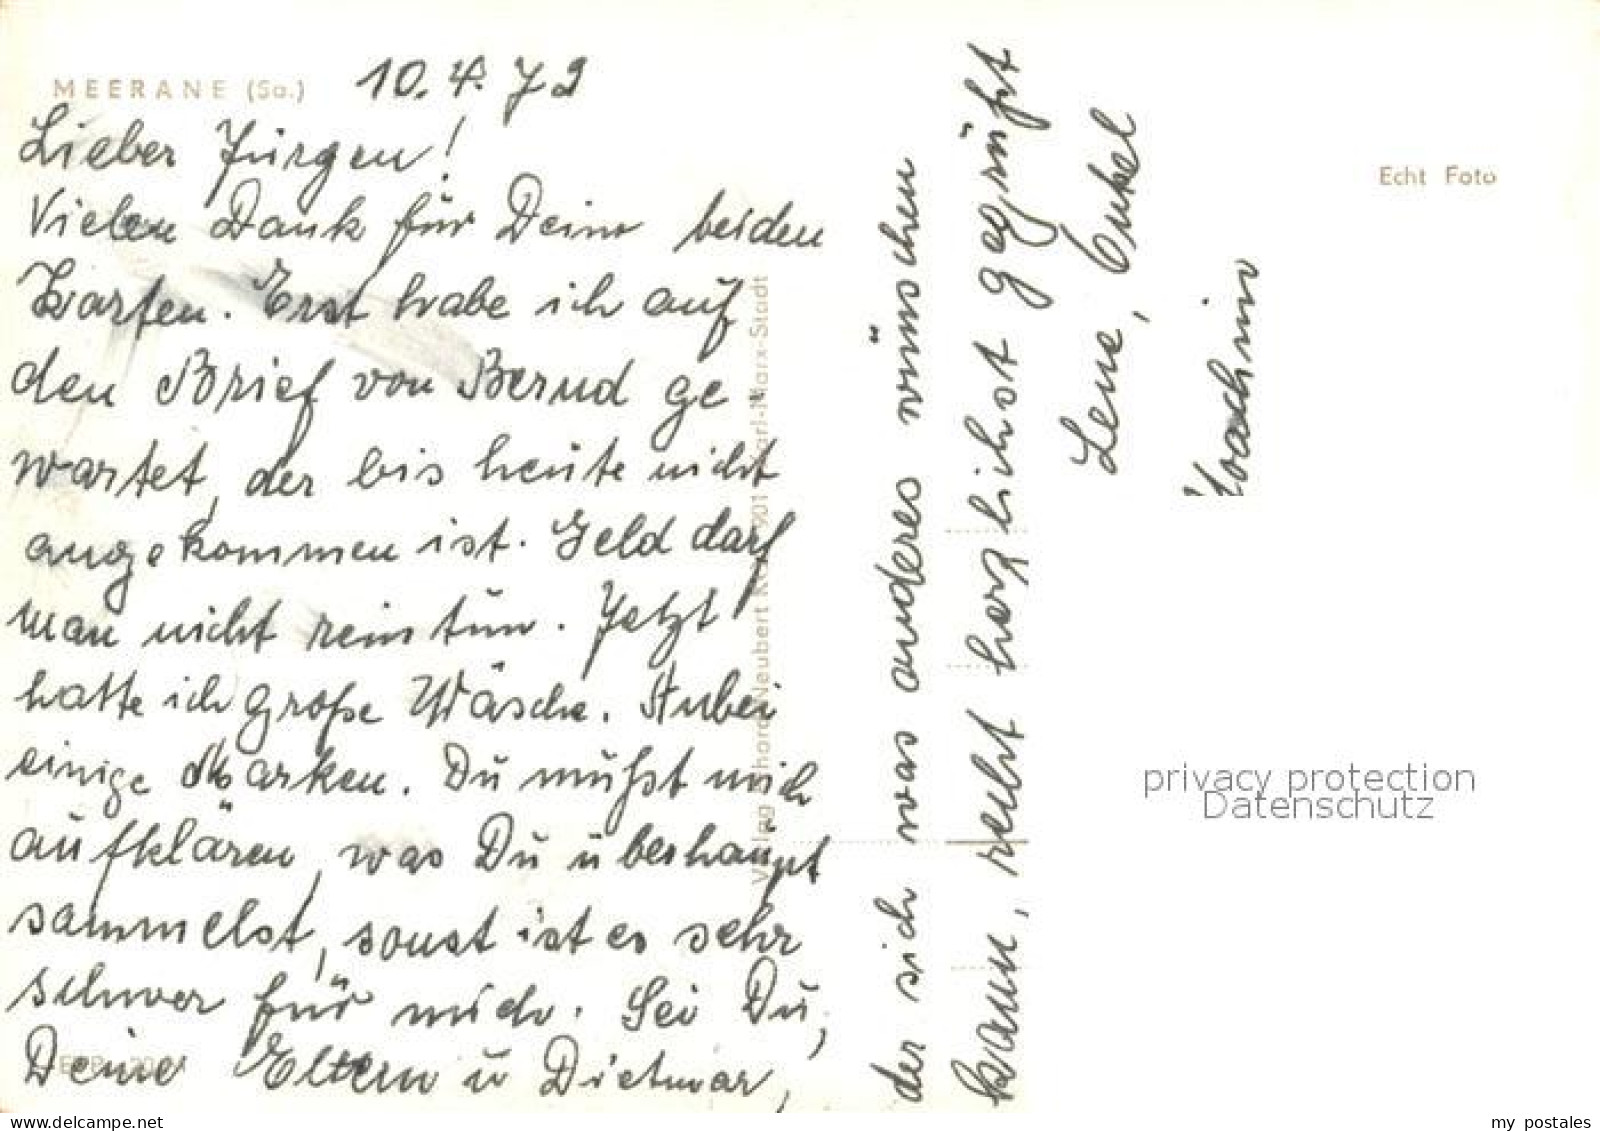 MEERANE (Sa.)
10.4.72
Lieber Jürgen!
Vielen Dank für Deine beiden
Karten. Erst habe ich auf
den Brief von Bernd ge-
wartet, der bis heute nicht
angekommen ist. Geld darf
man nicht reintun. Jetzt
hatte ich große Wäsche. Anbei
einige Marken. Du mußst mich
aufklären, was Du überhaupt
sammelst, sonst ist es sehr
schwer für mich. Sei Du,
Deine Eltern u Dietmar,
der sich was anderes wünschen
kann, recht herzlichst gegrüßt
Lene, Enkel
Joachim
Echt Foto
Neubert Karl-Marx-Stadt
privacy protection
Datenschutz
www.delcampe.net
my_postales